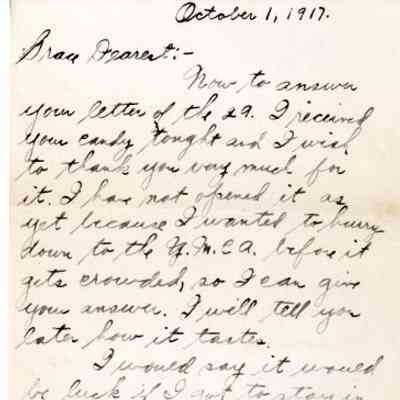 October 1, 1917.
Grace Dearest:-
Now to answer
your letter of the 29. I received
your candy tonght and I wish
to thank you very much for
it. I have not opened it as
yet because I wanted to hurry
down to the Y.M.C.A. before it
gets crowded, so I can give
you answer. I will tell you
later how it tastes.
I would say it would
be luck if I got to stay in